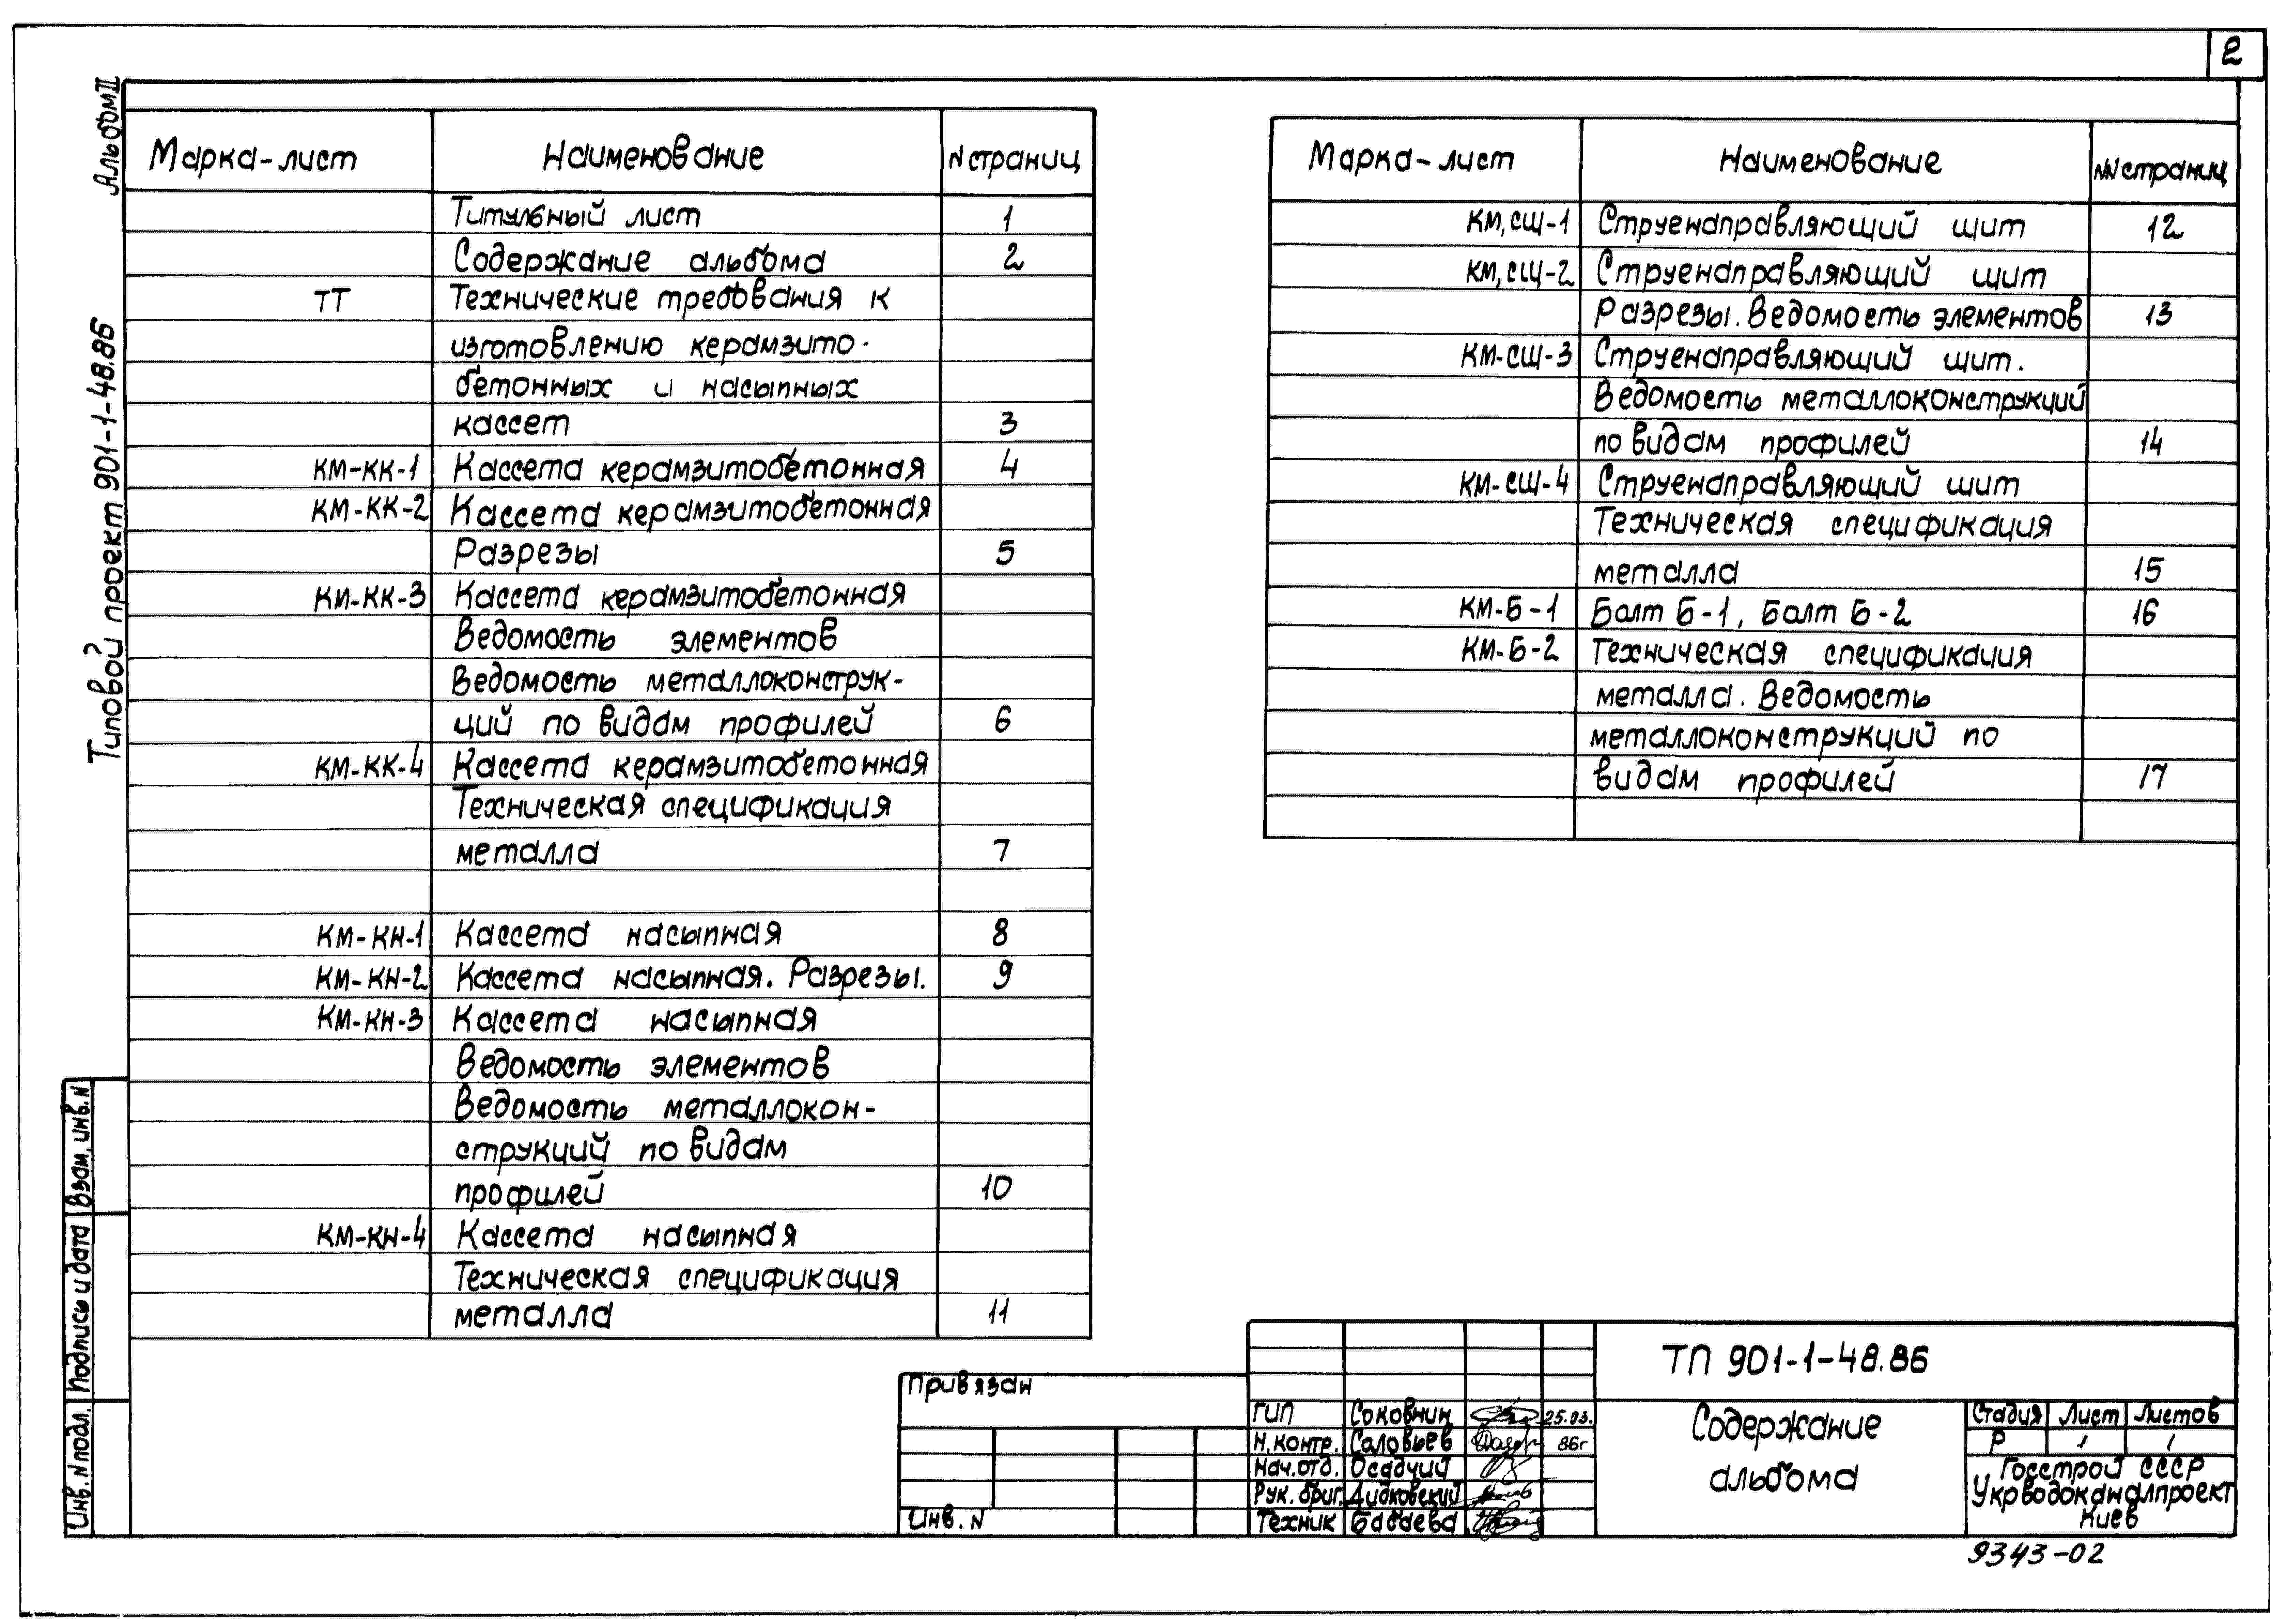 2
Альбом II
Типовой проект 901-1-48.86
Марка-лист Наименование N страниц
Титульный лист 1
Содержание альбома 2
ТТ Технические требования к
изготовлению керамзито-
бетонных и насыпных
кассет 3
КМ-КК-1 Кассета керамзитобетонная 4
КМ-КК-2 Кассета керамзитобетонная
Разрезы 5
КМ-КК-3 Кассета керамзитобетонная
Ведомость элементов
Ведомость металлоконструк-
ций по видам профилей 6
КМ-КК-4 Кассета керамзитобетонная
Техническая спецификация
металла 7
КМ-КН-1 Кассета насыпная 8
КМ-КН-2 Кассета насыпная. Разрезы. 9
КМ-КН-3 Кассета насыпная
Ведомость элементов
Ведомость металлокон-
струкций по видам
профилей 10
КМ-КН-4 Кассета насыпная
Техническая спецификация
металла 11
Марка-лист Наименование NN страниц
КМ,СЩ-1 Струенаправляющий щит 12
КМ,СЩ-2 Струенаправляющий щит
Разрезы. Ведомость элементов 13
КМ-СЩ-3 Струенаправляющий щит.
Ведомость металлоконструкций
по видам профилей 14
КМ-СЩ-4 Струенаправляющий щит
Техническая спецификация
металла 15
КМ-Б-1 Болт Б-1, Болт Б-2 16
КМ-Б-2 Техническая спецификация
металла. Ведомость
металлоконструкций по
видам профилей 17
Взам. инв. N
Подпись и дата
Инв. N подл.
Привязан
Инв. N
ГИП Соковнин 25.03.
Н.контр. Соловьев 86г
Нач.отд. Осадчий
Рук. бриг. Дидковский
Техник Бабаева
ТП 901-1-48.86
Содержание
альбома
Стадия Лист Листов
Р 1 1
Госстрой СССР
Укрводоканалпроект
Киев
9343-02